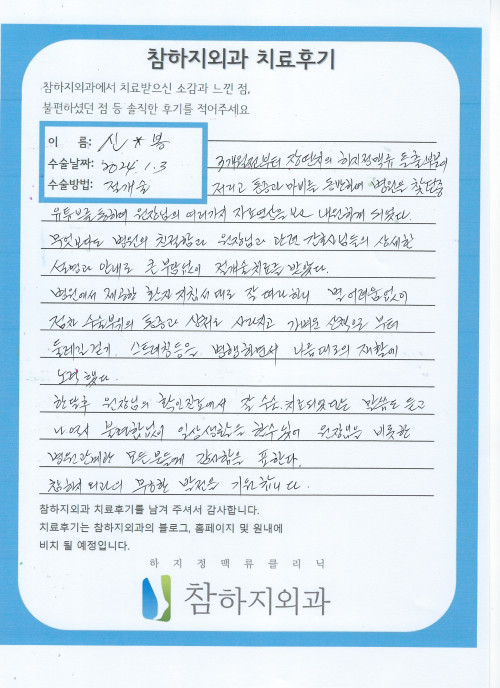 참하지외과 치료후기
참하지외과에서 치료받으신 소감과 느낀 점,
불편하셨던 점 등 솔직한 후기를 적어주세요
이 름: 신*봉
수술날짜: 2024. 1. 3
수술방법: 절개술
3개월전부터 장딴지의 하지정맥류 돌출부분이
저리고 통증과 마비를 동반하여 병원을 찾던중
유투브를 통하여 원장님의 여러가지 자료영상을 보고 내원하게 되었다.
무엇보다도 병원의 친절함과 원장님과 간호사님들의 상세한
설명과 안내로 큰 부담없이 절개술치료를 받았다.
병원에서 제공한 환자 지침서 대로 잘 따라하니 별 어려움없이
점차 수술부위의 통증과 상처도 사라지고 가벼운 산책으로 부터
둘레길 걷기, 스트레칭등을 병행하면서 나름대로의 재활에
노력했다.
한달후 원장님의 확인진료에서 잘 수술.치료되었다는 말씀도 듣고
불편함없이 일상생활을 할수있어 원장님을 비롯한
병원관계한 모든분들께 감사함을 표한다.
참하지외과의 무궁한 발전을 기원합니다.
참하지외과 치료후기를 남겨 주셔서 감사합니다.
치료후기는 참하지외과의 블로그, 홈페이지 및 원내에
비치 될 예정입니다.
하지정맥류클리닉
참하지외과